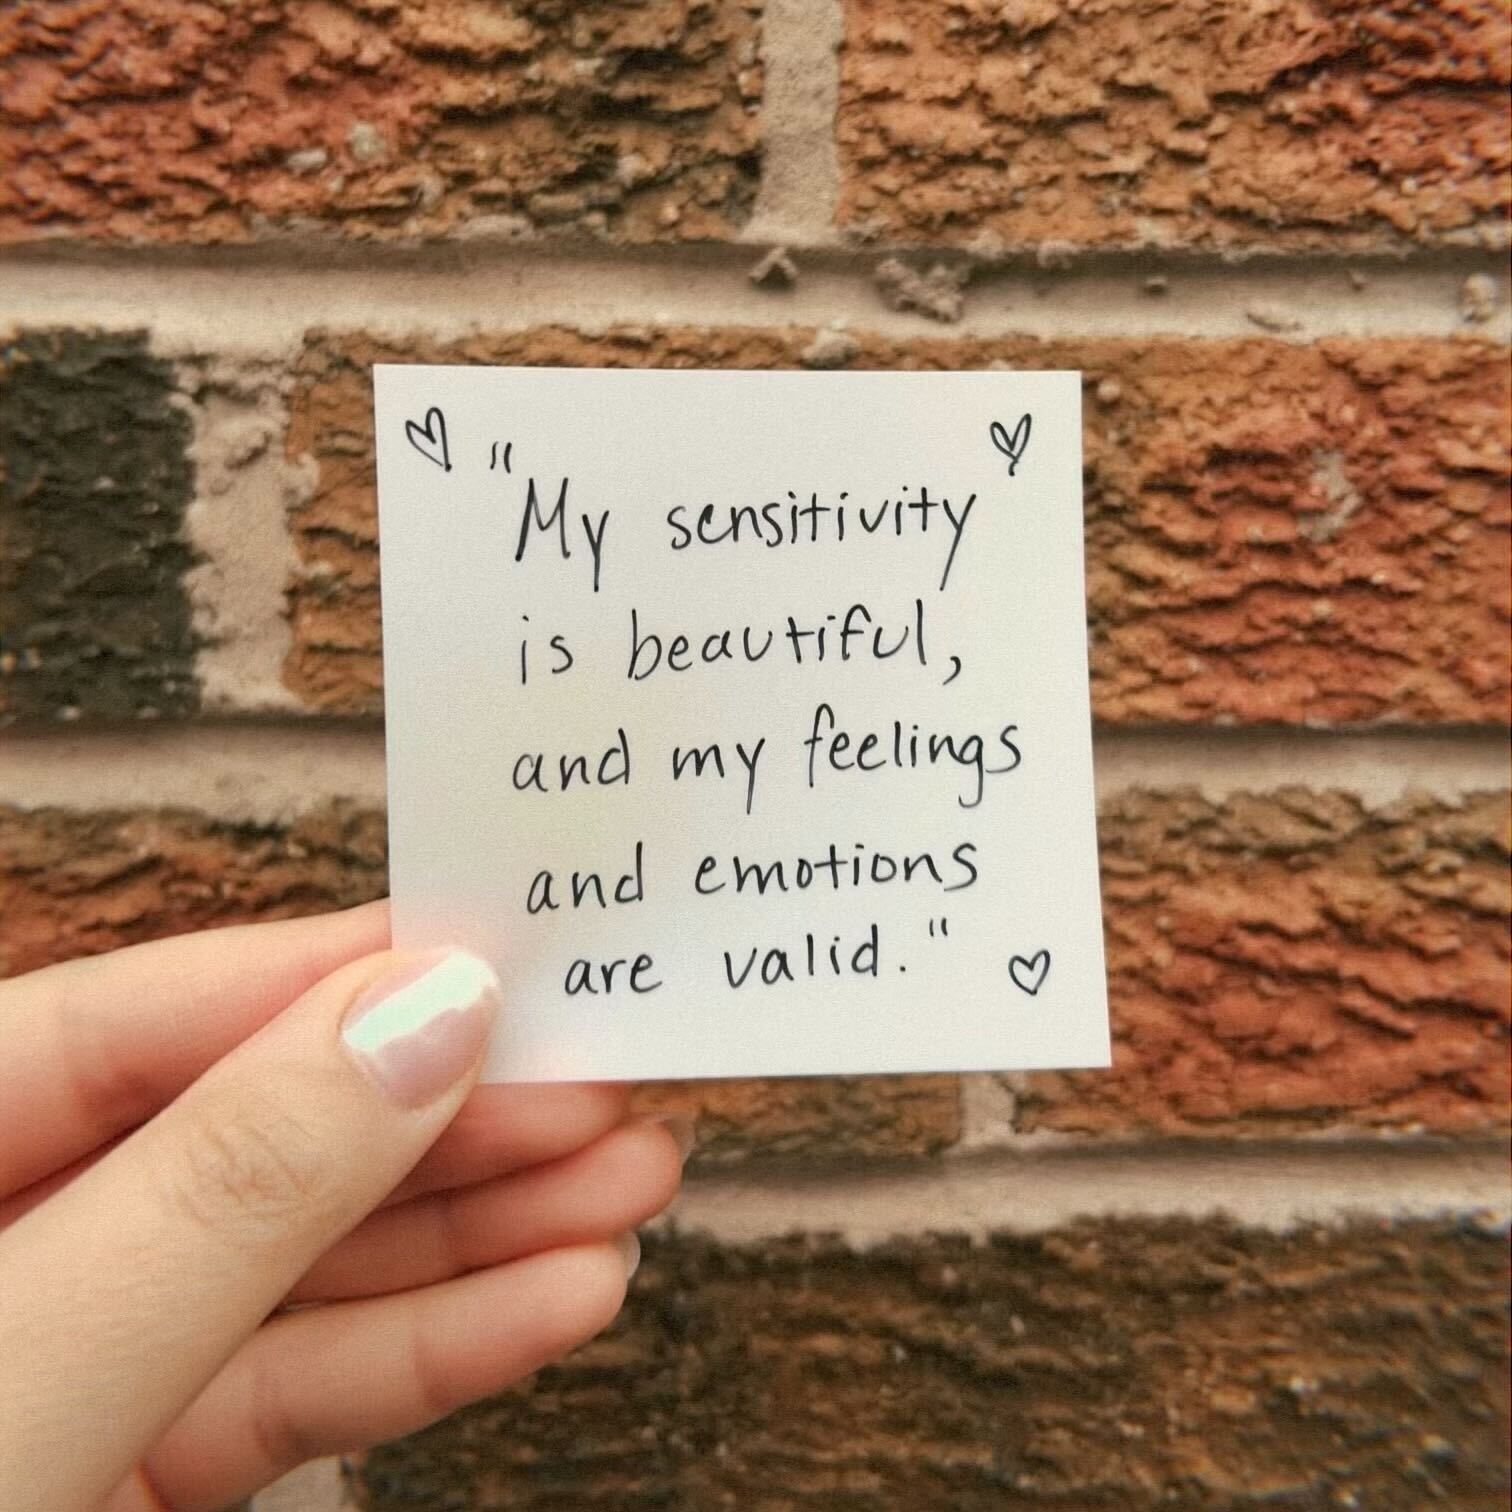 "My sensitivity
is beautiful,
and my feelings
and emotions
are valid."